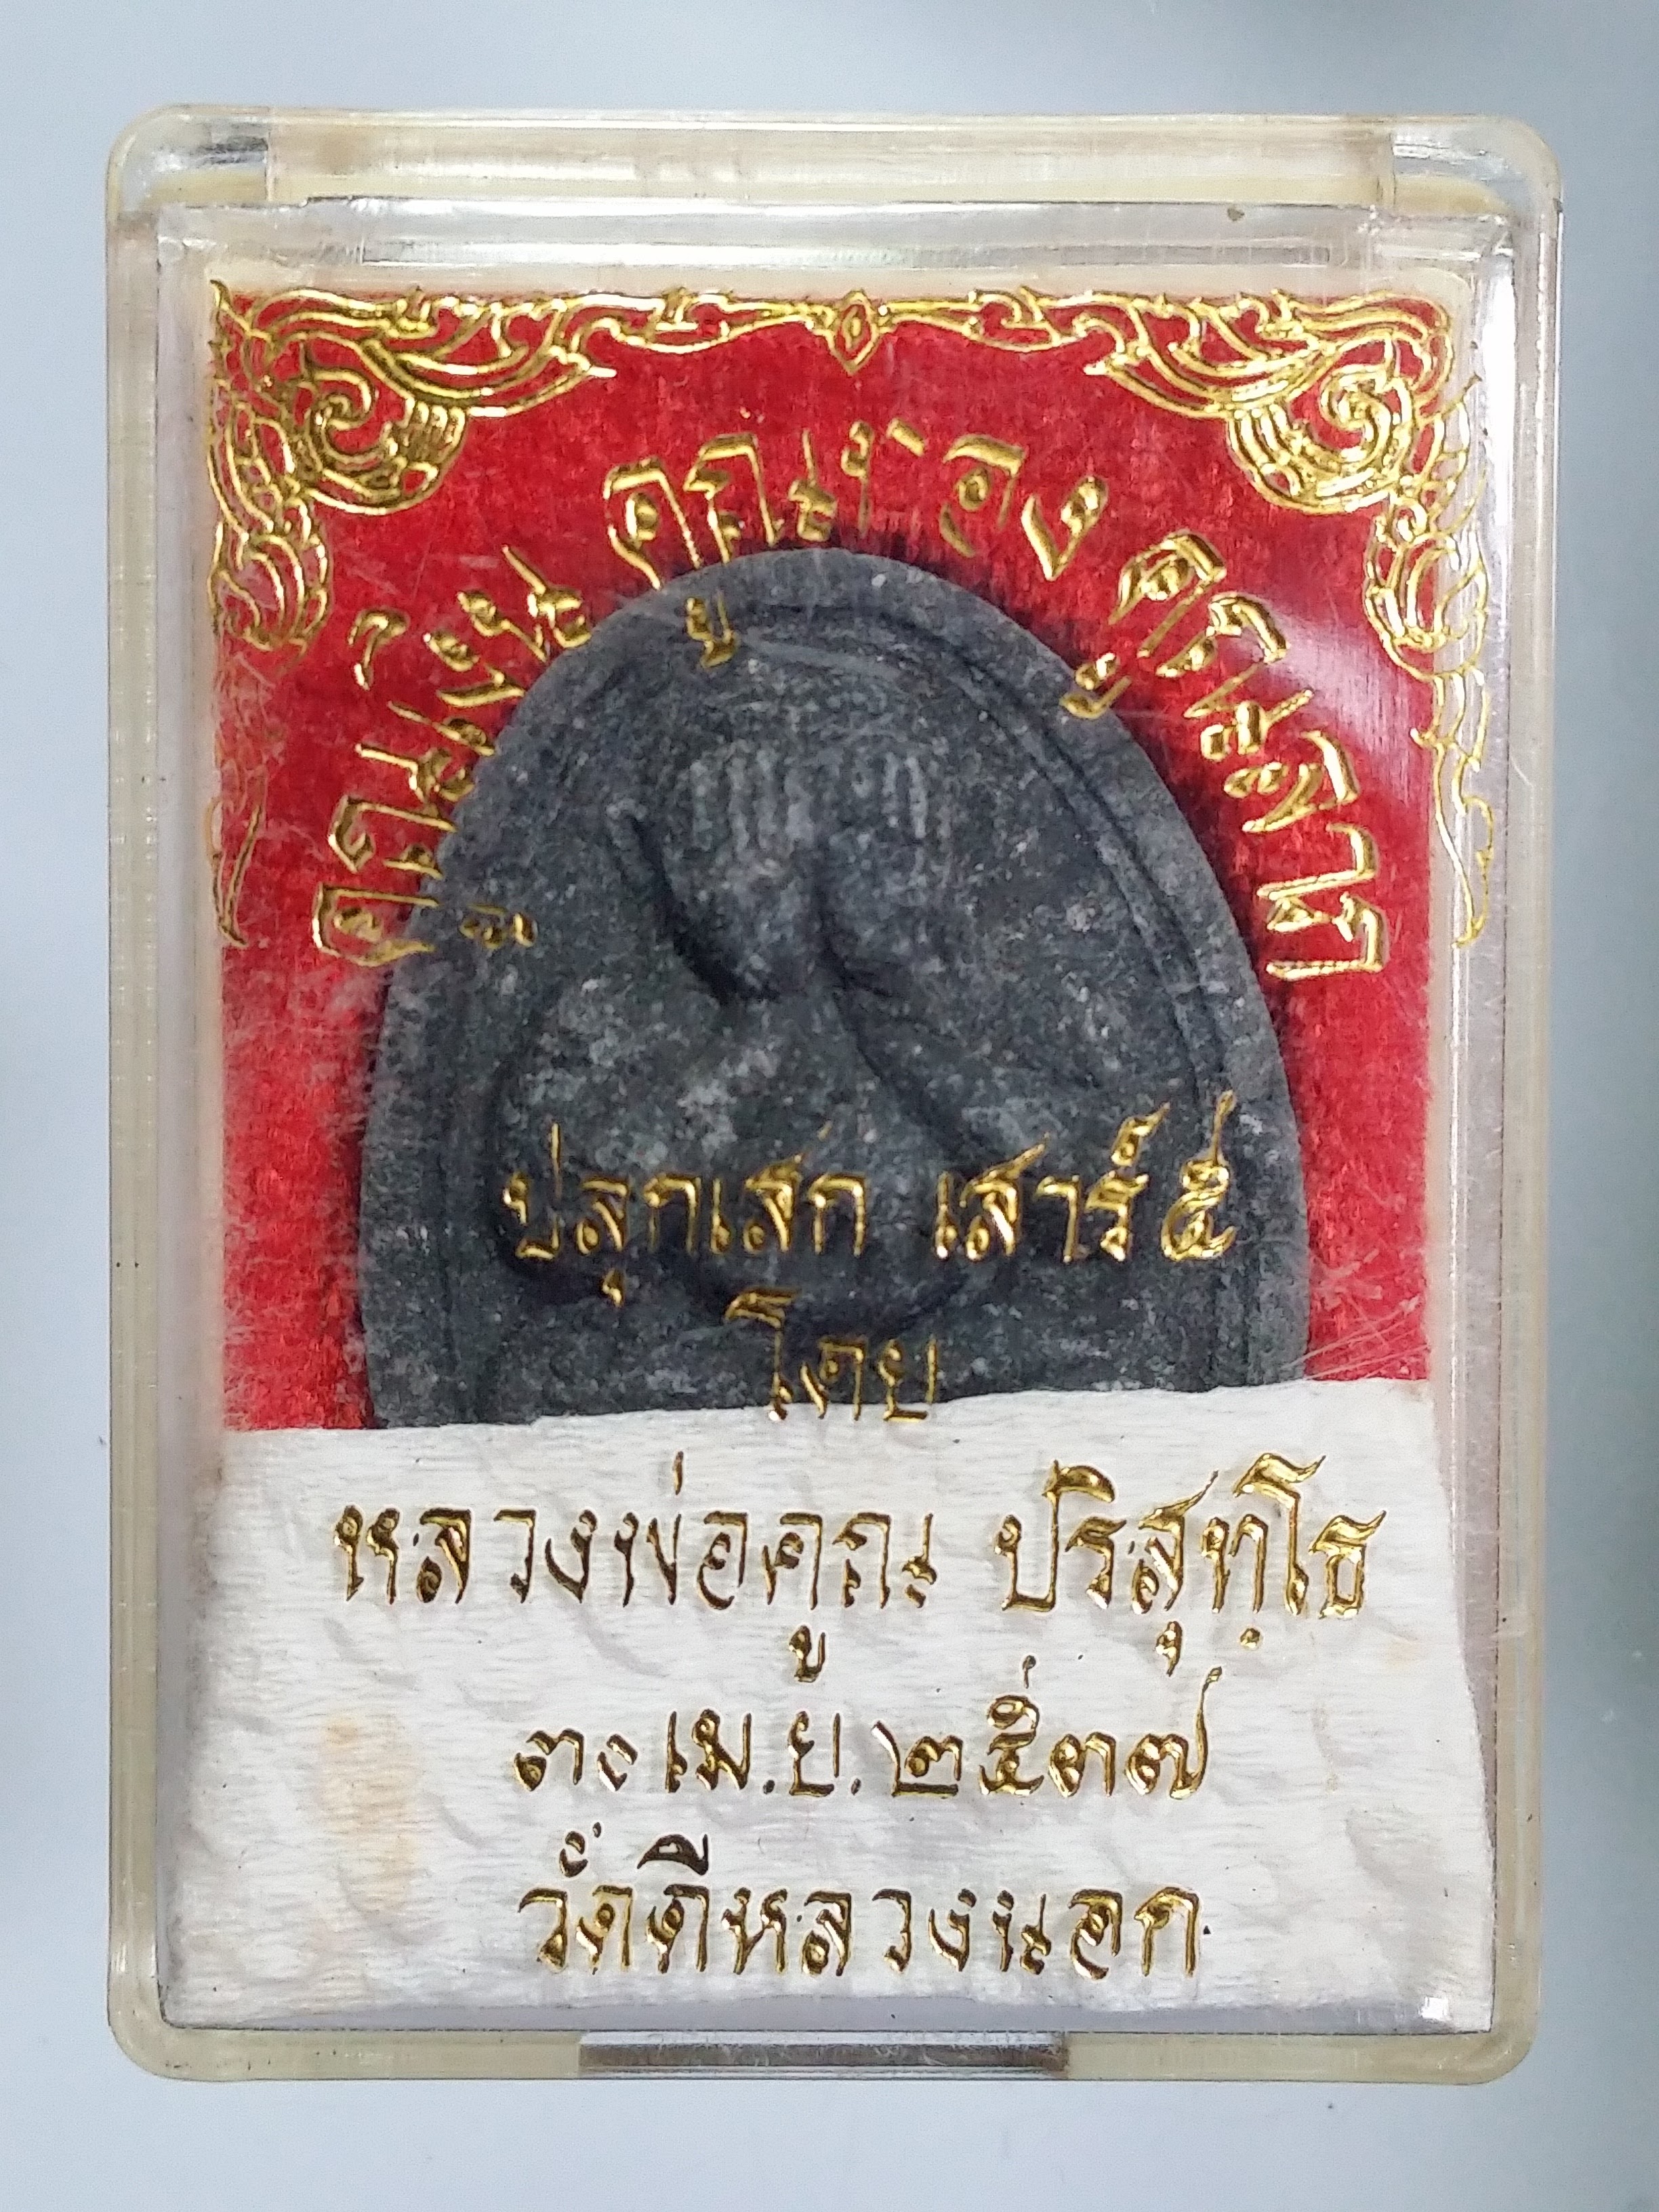 คูณเงิน คูณทอง คูณลาภ
ปลุกเสก เสาร์ ๕
โดย
หลวงพ่อคูณ ปริสุทฺโธ
๓๐ เม.ย. ๒๕๓๗
วัดดีหลวงนอก